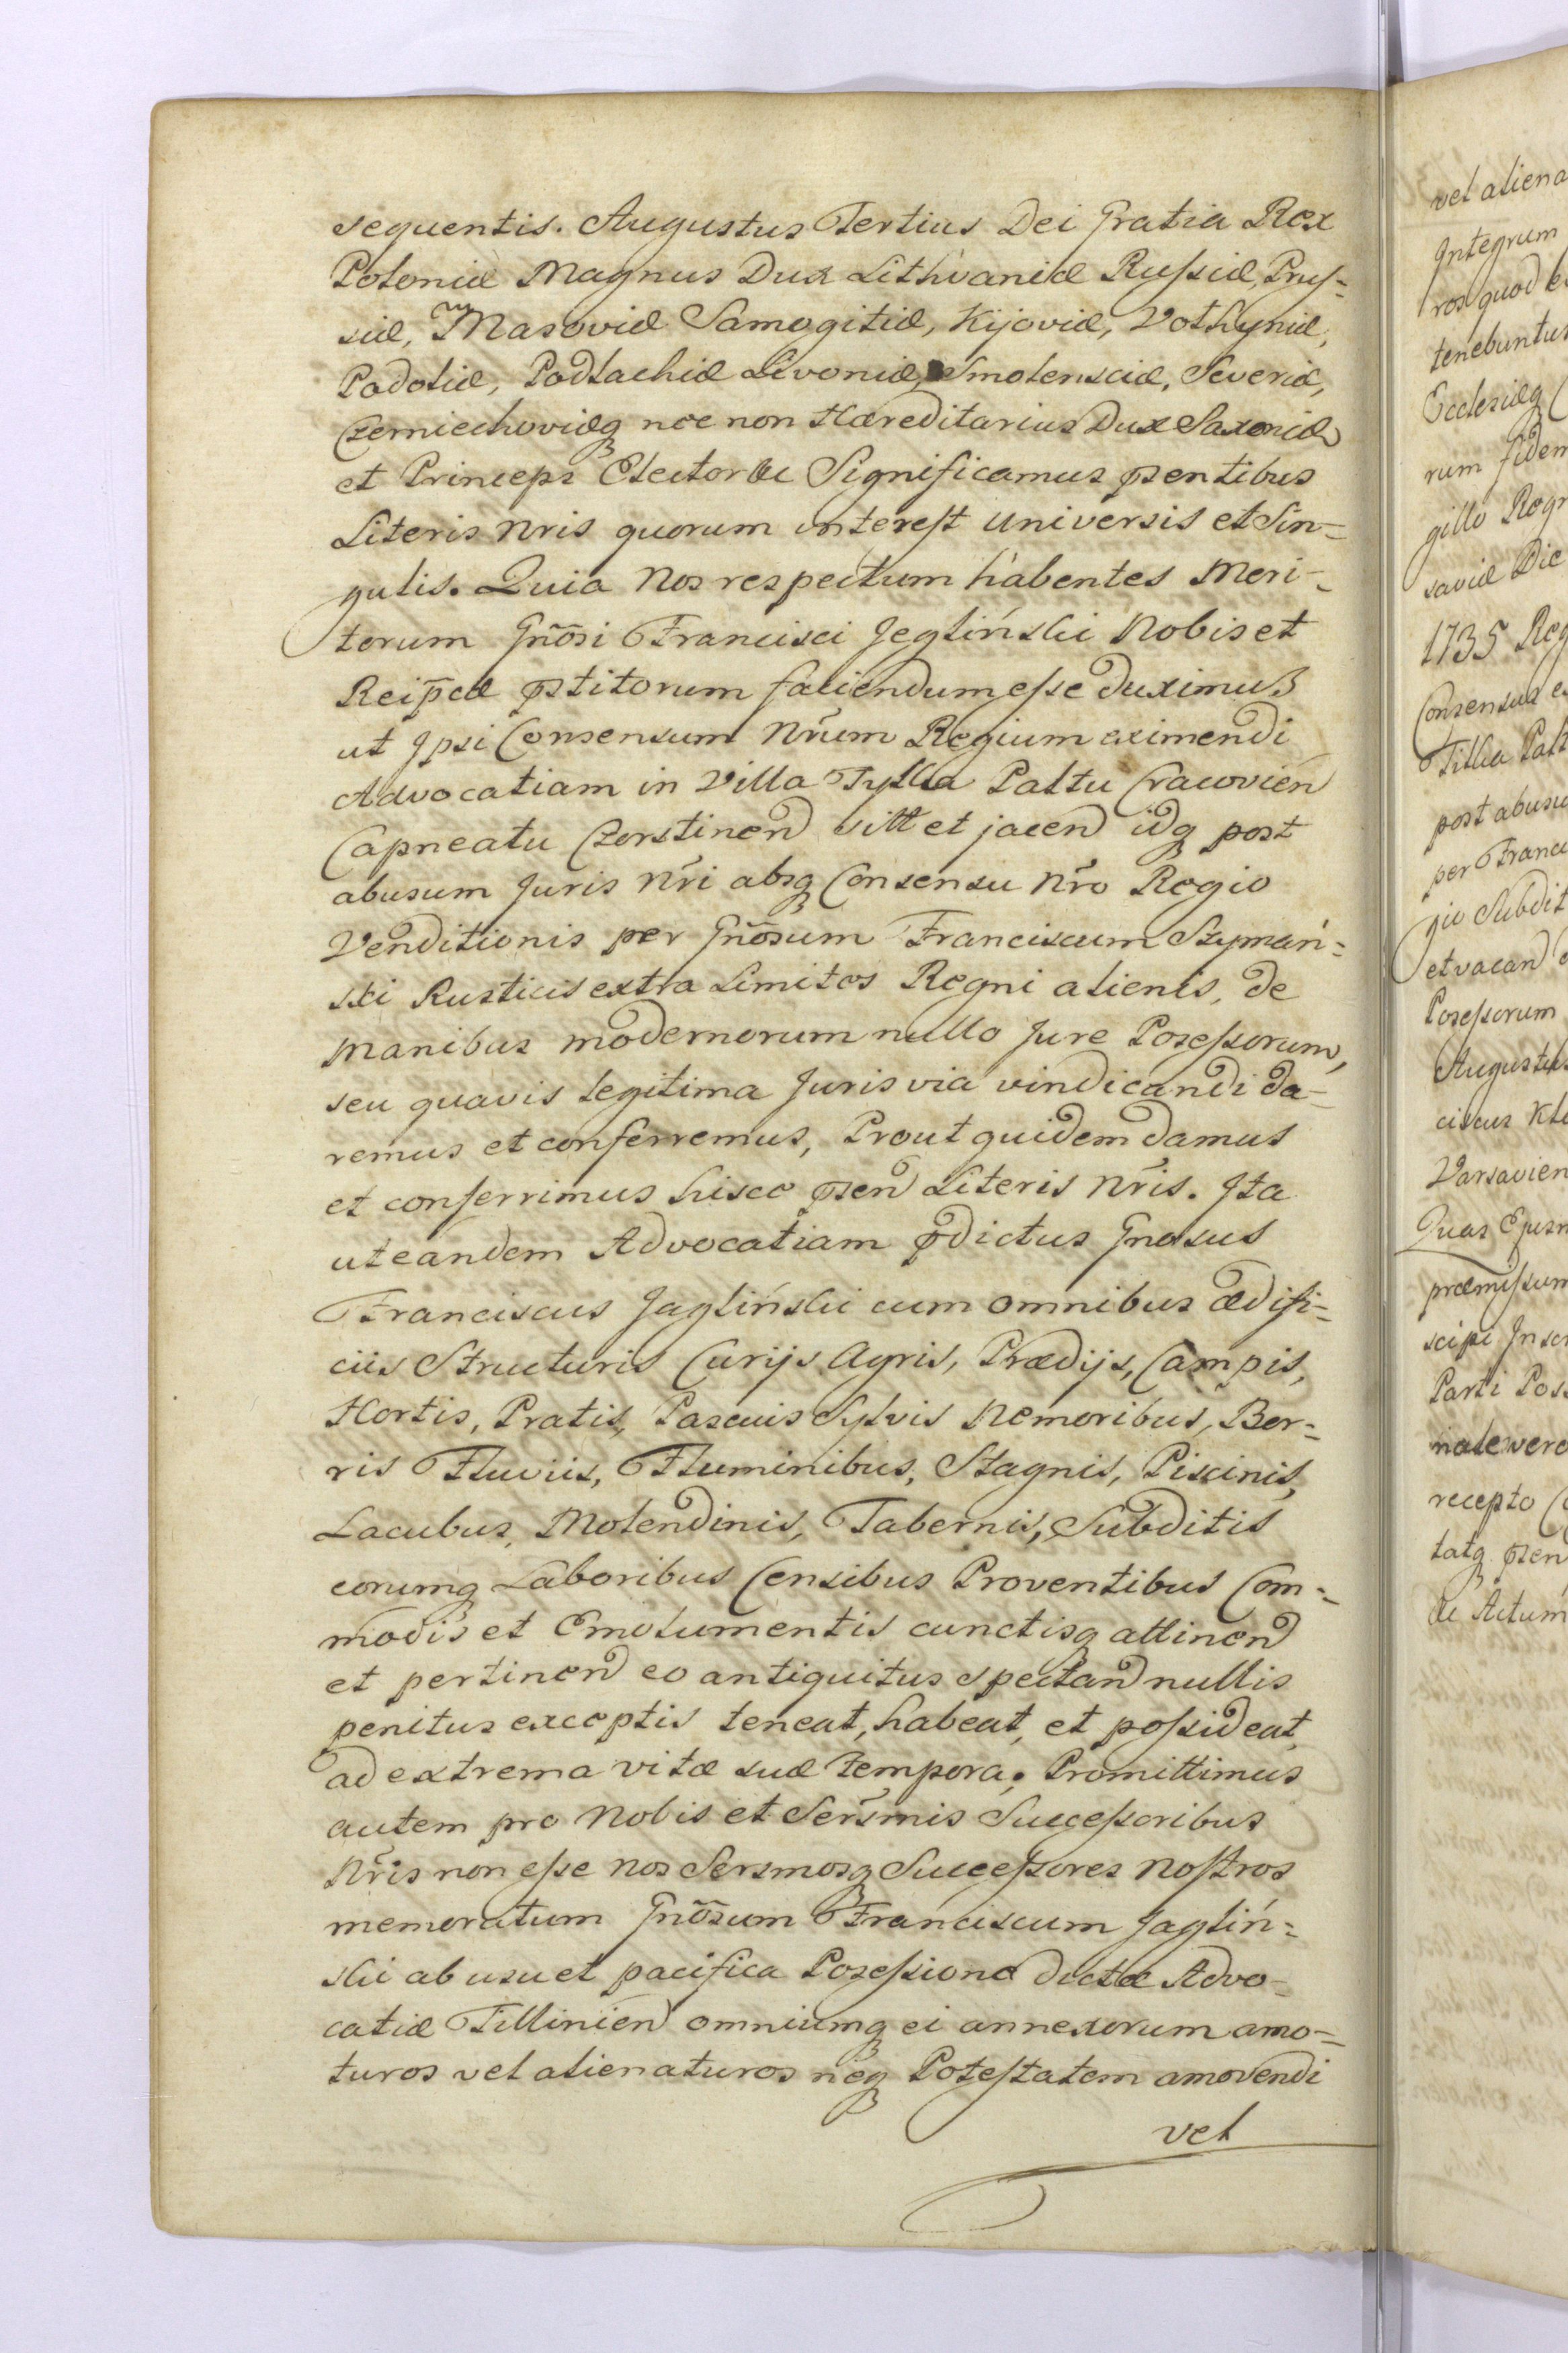 sequentis. Augustus Tertius Dei Gratia Rex
Poloniæ Magnus Dux Lithvaniæ Rußiæ, Pruß-
siæ, Masoviæ Samogitiæ, Kijoviæ, Volhyniæ,
Podoliæ, Podlachiæ Livoniæ, Smolensciæ, Severiæ,
Czerniechoviæq nec non Hæreditarius Dux Saxoniæ
et Princeps Elector &c Significamus pñsentibus
Literis Nris quorum interest universis et Sin-
gulis. Quia Nos respectum habentes Meri-
torum Gñosi Francisci Jegliński Nobis et
Reipcæ pstitorum faciendum eße duximus
ut Ipsi Consensum Nrum Regium eximendi
Advocatiam in Villa Tylka Paltu Cracovien
Capneatu Czorstinen sitt et jacen idq post
abusum Juris Nri absq Consensu Nro Regio
Venditionis per Gñosum Franciscum Szymań=
ski Rusticis extra Limites Regni alienis, de
manibus modernorum nullo Jure Poseßorum,
seu quavis legitima Juris via vindicandi da-
remus et conferremus, Prout quidem damus
et conferrimus hisce psen Literis Nris. Ita
ut eandem Advocatiam pdictus Gnosus
Franciscus Jagliński cum omnibus ædifi=
ciis Structuris Curijs Agris, Prædijs, Campis,
Hortis, Pratis, Pascuis Sylvis Nemoribus, Bor=
ris Fluviis, Fluminibus, Stagnis, Piscinis,
Lacubus, Molendinis, Tabernis, Subditis
eorumq Laboribus Censibus Proventibus Com=
modis et Emolumentis cunctisq attinen
et pertinen eo antiquitus spectan nullis
penitus exceptis teneat, habeat, et poßideat,
ad extrema vitæ suæ tempora. Promittimus
autem pro Nobis et Sersmis Succeßoribus
Nris non eße nos Sersmosq Succeßores Nostros
memoratum Gñosum Franciscum Jagliń=
ski ab usu et pacifica Poseßione dictæ Advo-
catiæ Tillinien omniumq ei annexorum amo=
turos vel alienaturos neq Potestatem amovendi
vel
vel aliena
Integrum
ros quod
tenebuntur
Ecclesiæq
rum fidem
gillo Regn
saviæ Die
1735 Reg
Consensus
Tilka Palt
post abusu
per Franci
gio Subdit
et vacan
Poseßorum
Augustus
ciscus
Varsavien
Quas
præmißum
scipi
Parti Pos
nale vero
recepto
tatq psen
Actum